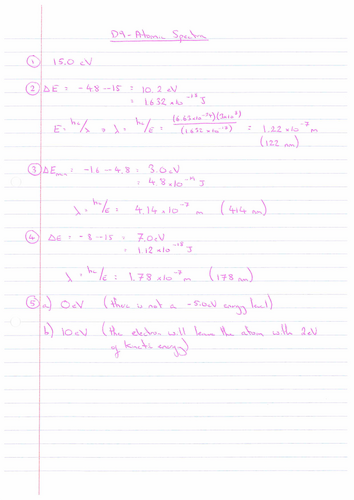 D9 - Atomic Spectra
① 15.0 eV
② ΔE = -4.8 - 15 = 10.2 eV
= 1.632 x 10⁻¹⁸ J
E = hc/λ → λ = hc/E = (6.63x10⁻³⁴)(3x10⁸)/(1.632 x10⁻¹⁸) = 1.22 x10⁻⁷ m
(122 nm)
③ ΔEmin = -1.6 - 4.8 = 3.0 eV
= 4.8 x 10⁻¹⁹ J
λ = hc/E = 4.14 x 10⁻⁷ m (414 nm)
④ ΔE = -8 - 15 = 7.0 eV
= 1.12 x 10⁻¹⁸ J
λ = hc/E = 1.78 x 10⁻⁷ m (178 nm)
⑤ a) 0 eV (there is not a -5.0eV energy level)
b) 10 eV (the electron will leave the atom with 2eV
of kinetic energy)